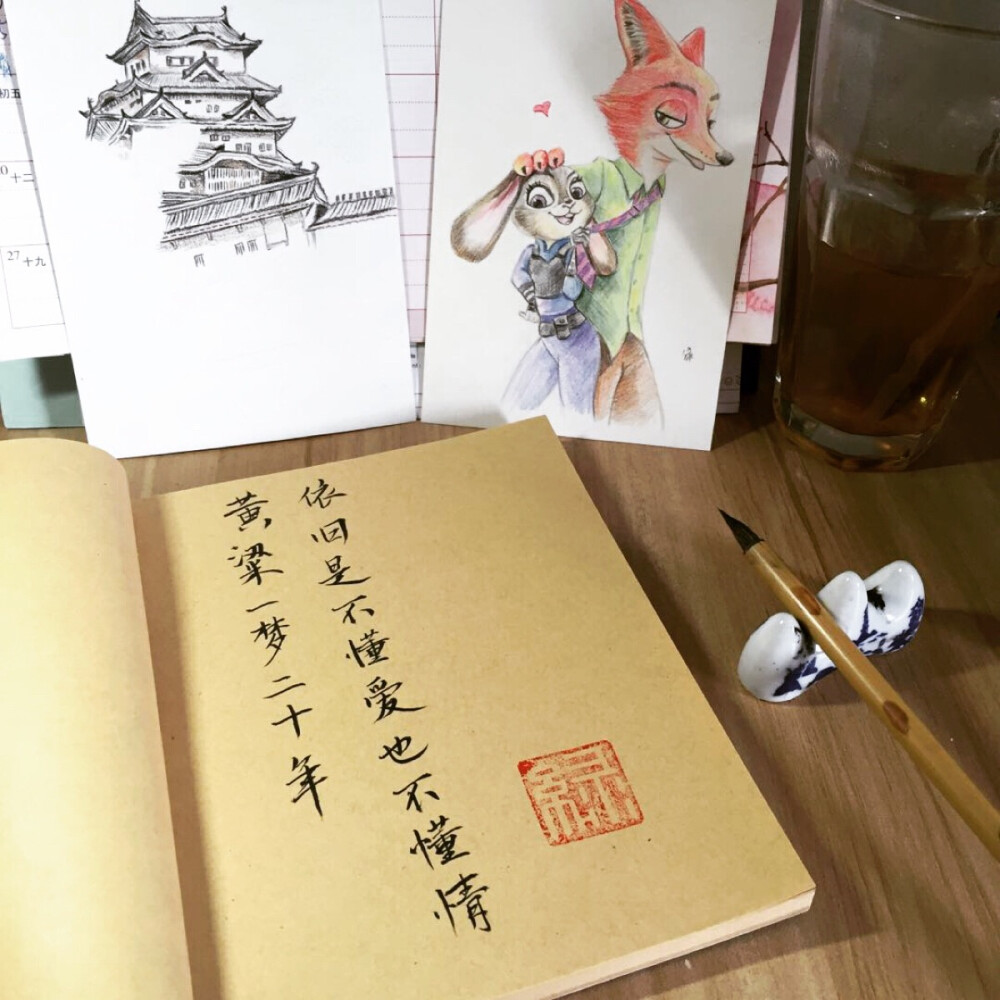 黄粱一梦二十年
依旧是不懂爱也不懂情
初五
十二
27 十九